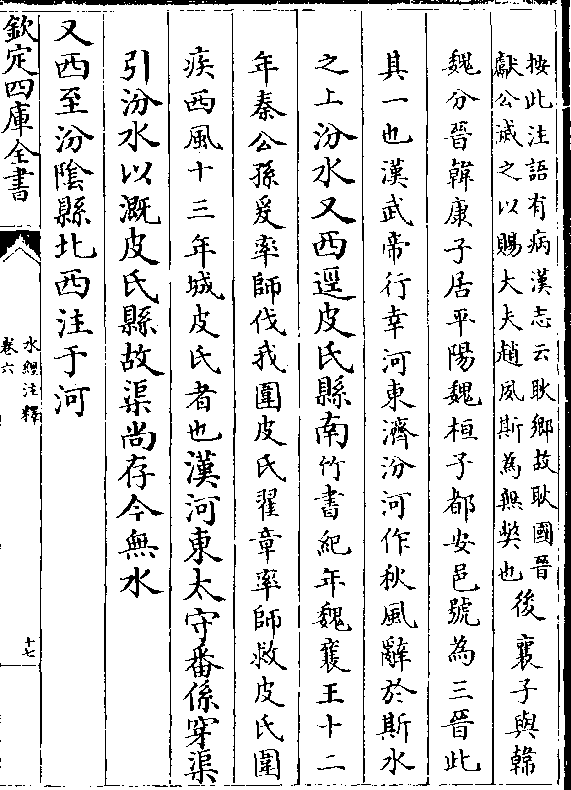 按此注語有病漢志云耿鄉故耿國晉
獻公滅之以賜大夫趙夙斯為無獘也
後襄子與韓
魏分晉韓康子居平陽魏桓子都安邑號為三晉此
其一也漢武帝行幸河東濟汾河作秋風辭於斯水
之上汾水又西逕皮氏縣南竹書紀年魏襄王十二
年秦公孫爰率師伐我圍皮氏翟章率師救皮氏圍
疾西風十三年城皮氏者也漢河東太守番係穿渠
引汾水以溉皮氏縣故渠尚存今無水
又西至汾陰縣北西注于河
欽定四庫全書
水經注釋
卷六
十七